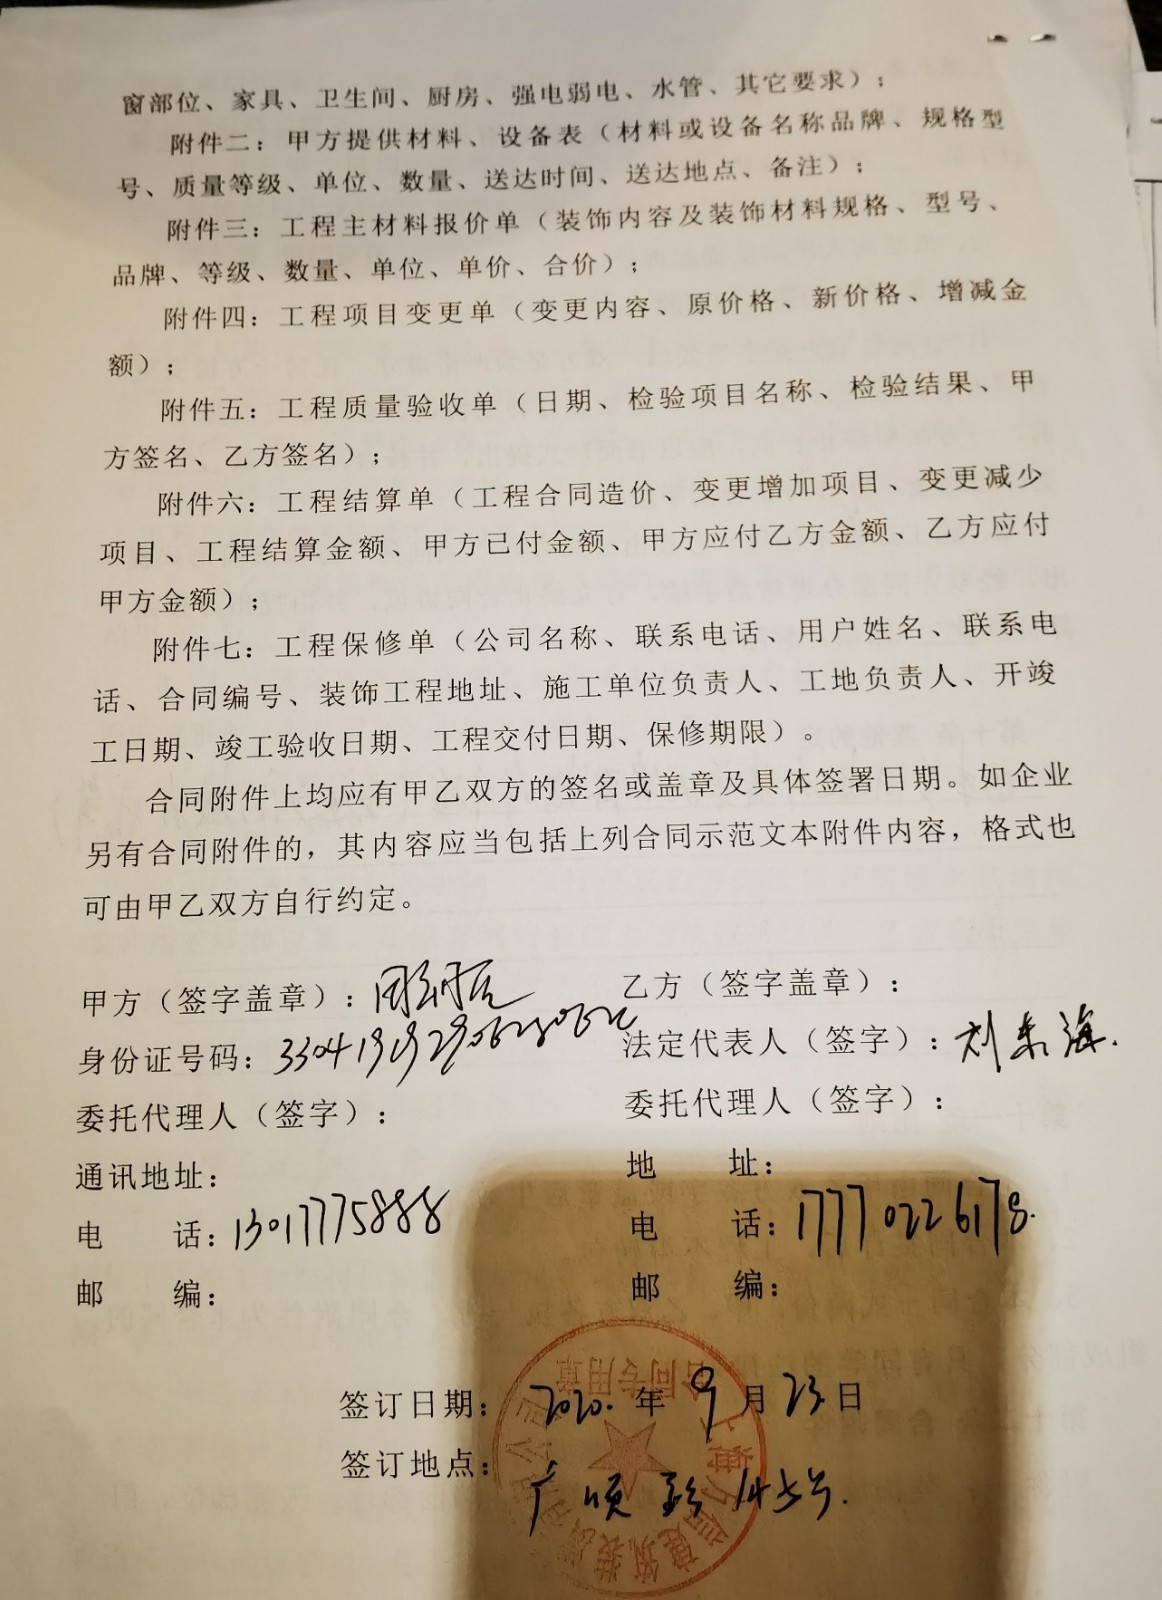 窗部位、家具、卫生间、厨房、强电弱电、水管、其它要求）；
附件二：甲方提供材料、设备表（材料或设备名称品牌、规格型
号、质量等级、单位、数量、送达时间、送达地点、备注）；
附件三：工程主材料报价单（装饰内容及装饰材料规格、型号、
品牌、等级、数量、单位、单价、合价）；
附件四：工程项目变更单（变更内容、原价格、新价格、增减金
额）；
附件五：工程质量验收单（日期、检验项目名称、检验结果、甲
方签名、乙方签名）；
附件六：工程结算单（工程合同造价、变更增加项目、变更减少
项目、工程结算金额、甲方已付金额、甲方应付乙方金额、乙方应付
甲方金额）；
附件七：工程保修单（公司名称、联系电话、用户姓名、联系电
话、合同编号、装饰工程地址、施工单位负责人、工地负责人、开竣
工日期、竣工验收日期、工程交付日期、保修期限）。
合同附件上均应有甲乙双方的签名或盖章及具体签署日期。如企业
另有合同附件的，其内容应当包括上列合同示范文本附件内容，格式也
可由甲乙双方自行约定。
甲方（签字盖章）：
乙方（签字盖章）：
身份证号码：
法定代表人（签字）：刘来海.
委托代理人（签字）：
委托代理人（签字）：
通讯地址：
地 址：
电 话：13017775888
电 话：17770226178.
邮 编：
邮 编：
签订日期：2020.年9月23日
签订地点：广顺
合同专用章